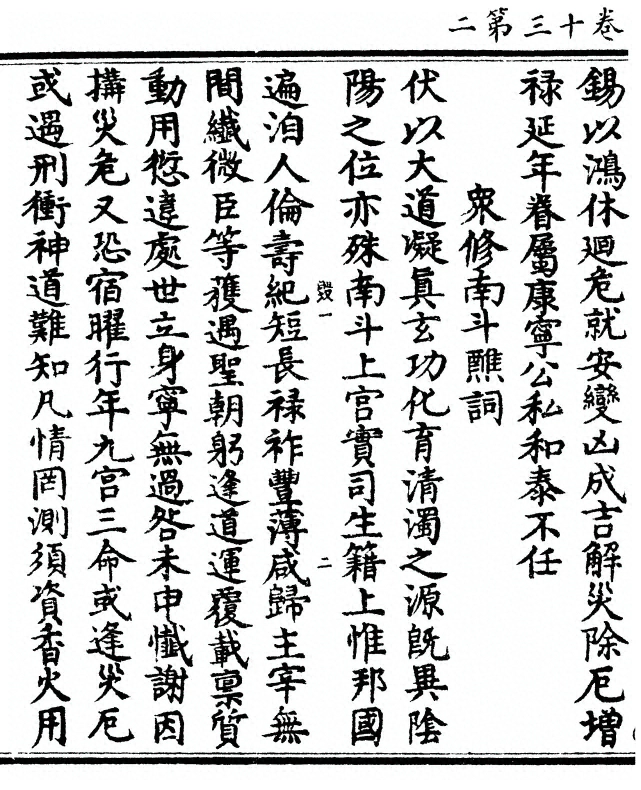 卷十三第二
錫以鴻休廻危就安變凶成吉解災除厄增
祿延年眷屬康寧公私和泰不任
衆修南斗醮詞
伏以大道凝眞玄功化育清濁之源旣異陰
陽之位亦殊南斗上宮實司生籍上惟邦國
遍洎人倫壽紀短長祿祚豐薄咸歸主宰無
毀一
二
間纖微臣等獲遇聖朝躬逢道運覆載禀質
動用愆違處世立身寧無過咎未申懺謝因
搆災危又恐宿曜行年九宮三命或逢災厄
或遇刑衝神道難知凡情罔測須資香火用